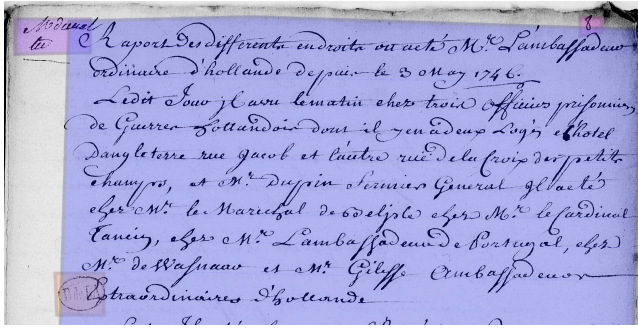 8
Raport des differents endroits ou acté Mr. L'ambassadeur
ordinaire d'hollande depuis le 3 May 1746.
Ledit Jour jl avu le matin chez trois officiers prisonniers
de Guerre hollandois dont il yen a deux Logés a l'hotel
Dangleterre rue Jacob et l'autre rue de la Croix des petits
champs, et Mr. Dupin fermier General jl acté
chez Mr. le Marechal de Belisle chez Mr. le Cardinal
Tancin, chez Mr. Lambassadeur de Portugal, chez
Mr. de Wasnaar et Mr. Gilesse Ambassadeurs
Extraordinaires d'hollande